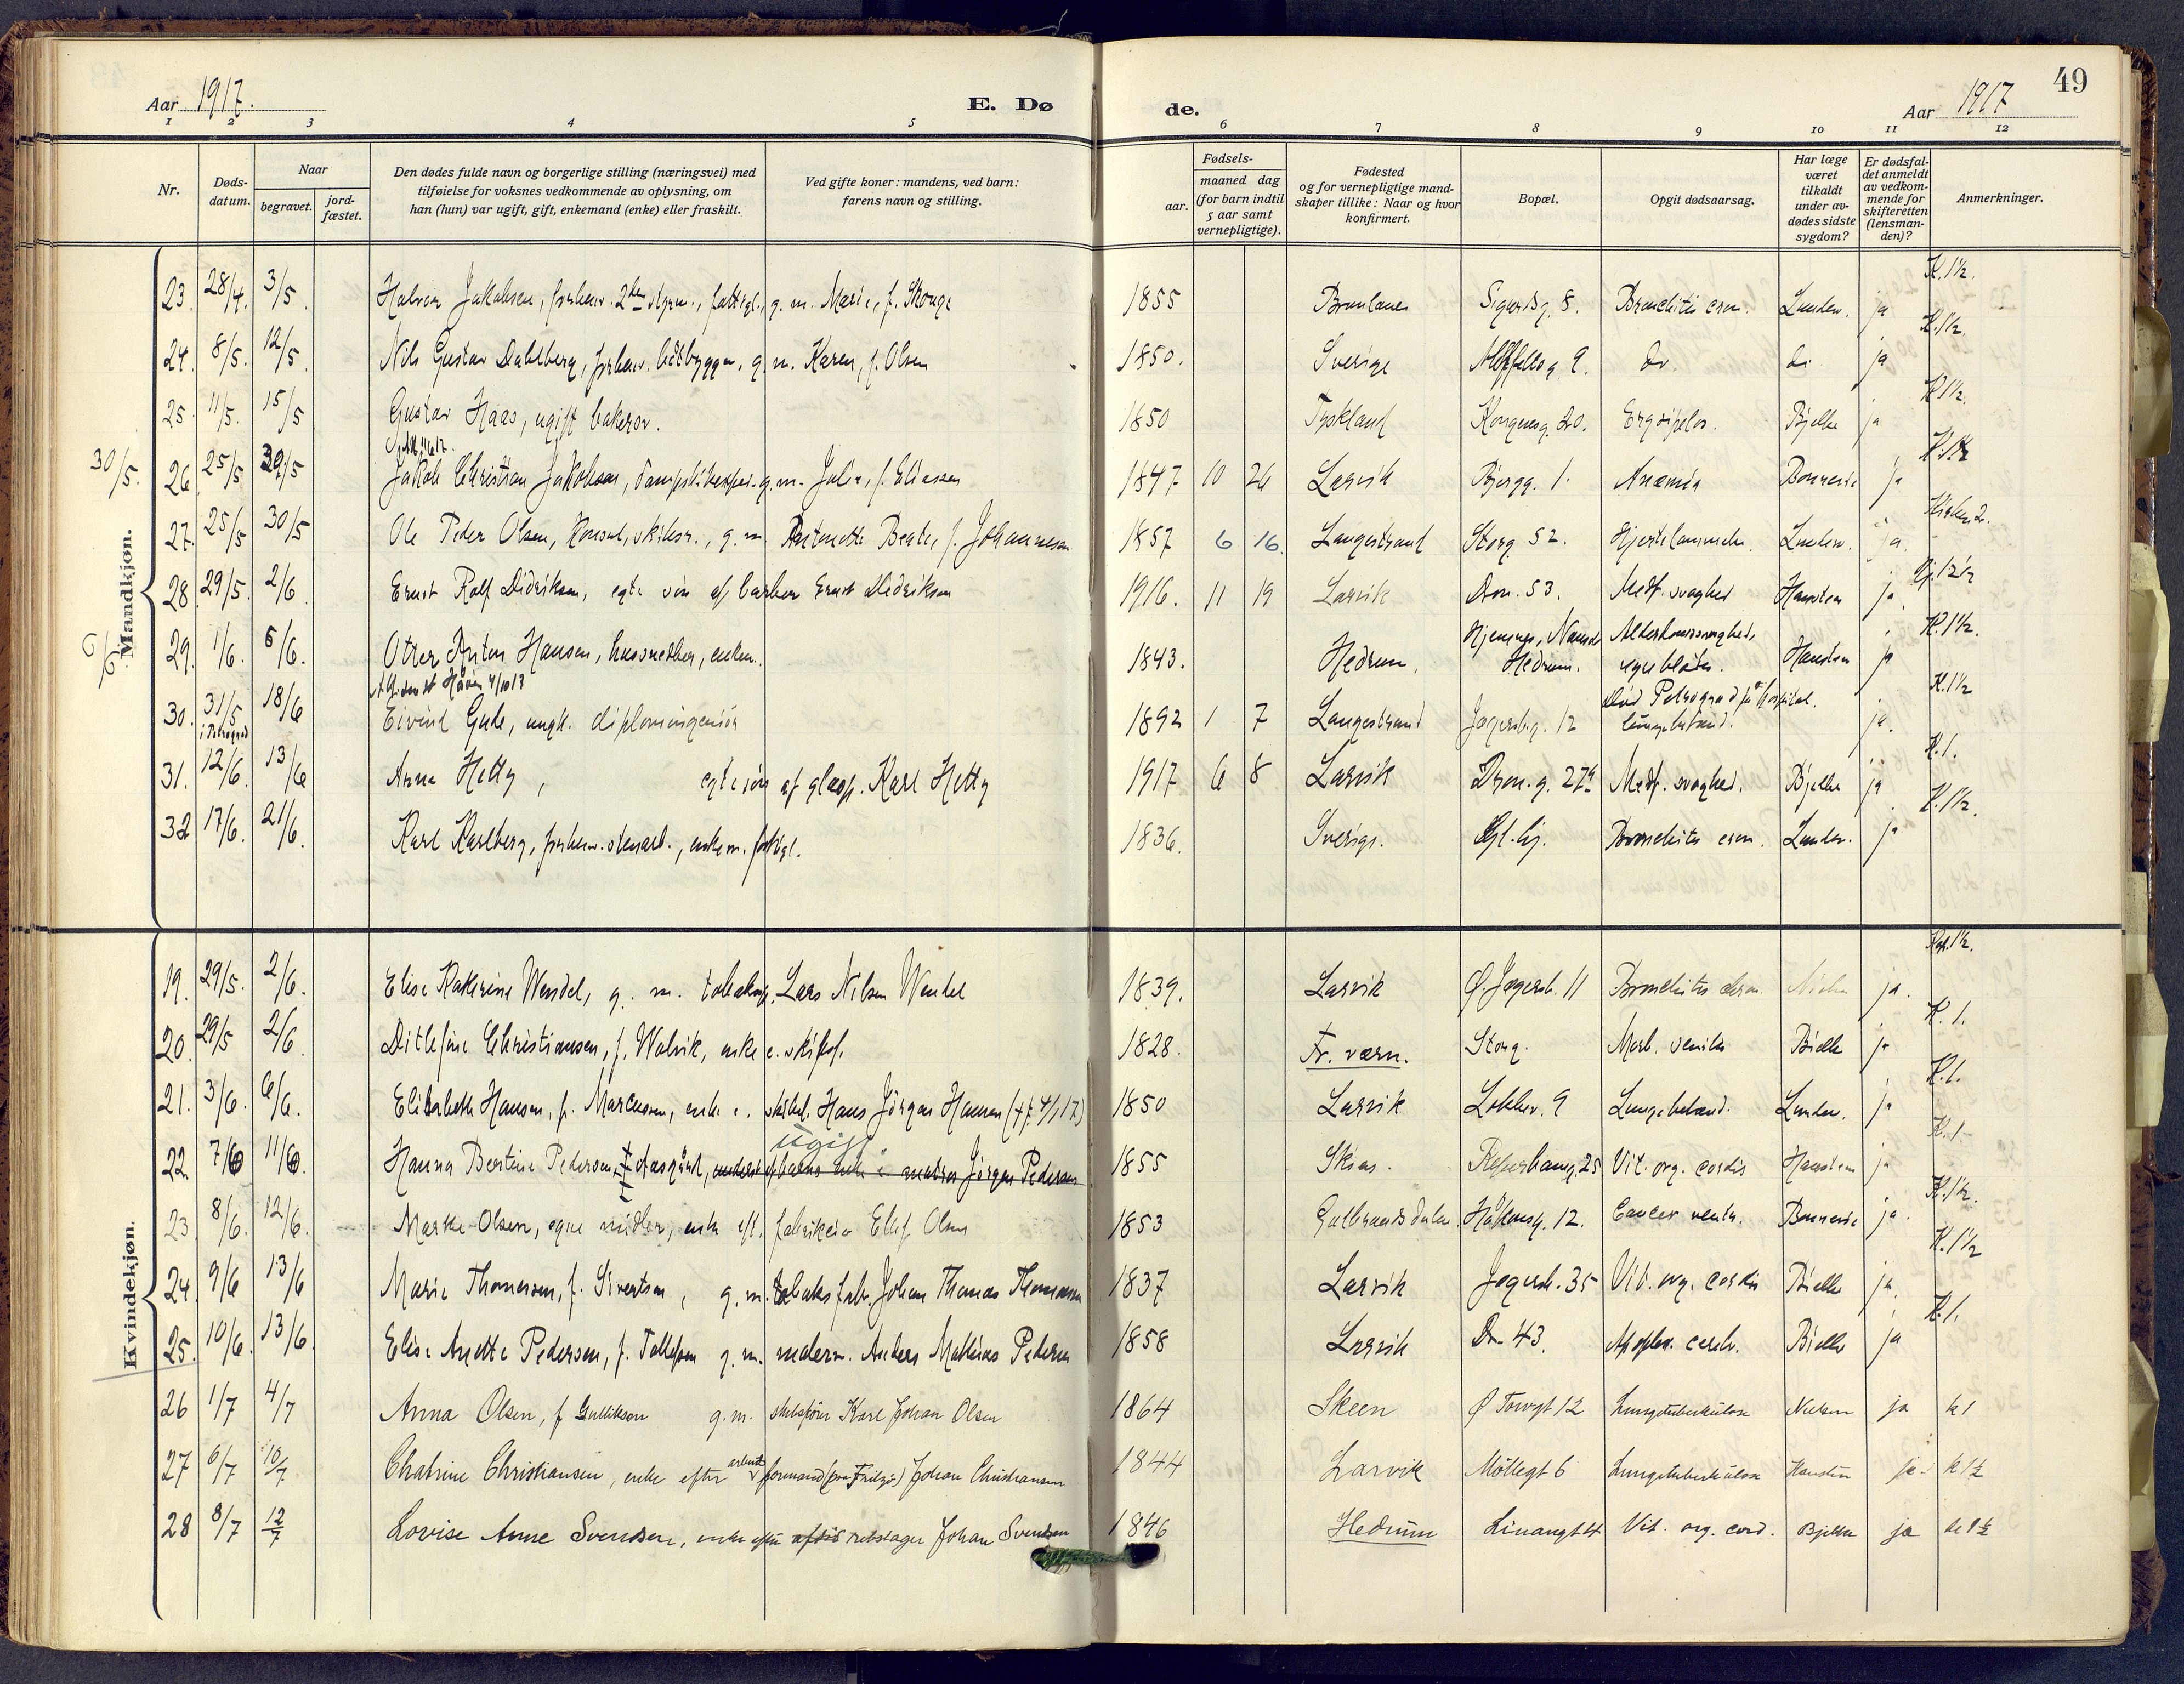 49
Aar 1917. E. Dø de. Aar 1917
1 2 3 4 5 6 7 8 9 10 11 12
Nr. Døds-datum. Naar begravet. jord-fæstet. Den dødes fulde navn og borgerlige stilling (næringsvei) med tilføielse for voksnes vedkommende av oplysning, om han (hun) var ugift, gift, enkemand (enke) eller fraskilt. Ved gifte koner: mandens, ved barn: farens navn og stilling. Fødsels- aar. maaned dag (for barn indtil 5 aar samt vernepligtige). Fødested og for vernepligtige mand-skaper tillike: Naar og hvor konfirmert. Bopæl. Opgit dødsaarsag. Har læge været tilkaldt under av-dødes sidste sygdom? Er dødsfal-det anmeldt av vedkom-mende for skifteretten (lensman-den)? Anmerkninger.
Mandkjøn.
23. 28/4. 3/5. Halvor Jakobsen, forhenv. 2den styrm., fattigl., g. m. Marie, f. Skouge 1855 Brunlanes Sigurdsg. 8. Bronchitis cron. Lunden. ja K. 1½.
24. 8/5. 12/5. Nils Gustav Dahlberg, forhenv. båtbygger, g. m. Karen, f. Olsen 1850. Sverige 9. do. do. ja K. 1½.
25. 11/5. 15/5 Gustav Haas, ugift bakersv. 1850 Tyskland Kongensg. 20. Erysipelas. Bjelke ja K 1½.
30/5. 26. 25/5 30/5 Jakob Christian Jakobsen, dampskibsexped. g. m. Julie, f. Eliassen 1847 10 26 Larvik Bjergg. 1. Anæmia Bonnevie ja K. 1½
27. 25/5 30/5 Ole Peder Olsen, Konsul, skibsr., g. m. Antonette Beate, f. Johannesen 1857 6 16. Langestrand Storg 52. Hjertelammelse. Lunden. ja. Kirken 2.
28. 29/5. 2/6. Ernst Rolf Didriksen, egte søn af barber Ernst Didriksen 1916. 11 19 Larvik Dron. 53. Medf. svaghed Hansteen ja. 1½
6/6 29. 1/6. 6/6. Otter Anton Hansen, husmedker, enkem. 1843. Hedrum. Hedrum. Alderdomssvaghed, Hansteen ja K. 1½.
30. 31/5 i Petrograd 18/6 Eivind Gude, ungk. diplomingeniør 1892 1 7 Langestrand Jegersbg. 12 Død Petrograd på hospital. lungebetænd. ja. K. 1½
31. 12/6. 13/6 Arne Hetty, egte søn af glasp. Karl Hetty 1917 6 8 Larvik Dron. g. 27a Medf. svaghed. Bjelke ja K. 1.
32 17/6. 21/6. Karl Karlberg, forhenv. stenarb., enkem. fattigl. 1836. Sverige. Bronchitis cron. Lunden. ja K. 1½.
Kvindekjøn.
19. 29/5. 2/6. Elise Katerine Wendel, g. m. Lars Nilsen Wendel 1839. Larvik Ø. Jegersb. 11 Bronchitis chron. ja. Kap. 1½.
20. 29/5 2/6. Ditlefine Christiansen, f. Walvik, enke e. skibsf. 1828. Fr. værn. Storg. Morb. senilis Bielke ja K. 1.
21. 3/6. 6/6. Elisabeth Hansen, f. Marcussen, enke e. Hans Jørgen Hansen 1850 Larvik 9 Lungebetænd. Lunden. ja K. 1.
22 7/6 11/6. Hanna Bertine Pedersen, ugift enke e matros Jörgen Pedersen 1855 Skien. Reperbang. 25 Vit. org. cordis Hansteen ja K. 1
23. 8/6. 12/6. Marthe Olsen, egne midler, enke eft. fabrikeier Ellef Olsen 1853 Gulbrandsdalen. Håkonsg. 12. Cancer ventr. Bonnevie ja. K. 1½.
24. 9/6 13/6 Marie Thomesen, f. Sivertsen, g. m. tobaksfabr. Johan Thomas Thomesen 1837 Larvik Jegersb. 35 Vit. org. cordis Bielke ja. K. 1½
25. 10/6. 13/6. Elise Anette Pedersen, f. Tollefsen g. m. malerm. Anders Mathias Pedersen 1858 Larvik Dr. 43. Apoplex. cereb. Bielke ja K. 1.
26 1/7 4/7 Anna Olsen, f Gulliksen g. m. skibsfører Karl Johan Olsen 1864 Skeen Ø Torvgt 12 Lungetuberkulose Nielsen ja k 1
27 6/7 10/7 Chatrine Christiansen, enke efter arbeids formand (paa Fritzø) Johan Christiansen 1844 Larvik Möllegt 6 Lungetuberkulose Hansteen ja. k 1½
28 8/7 12/7 Lovise Anne Svendsen, enke efter rebslager Johan Svendsen 1846 Hedrum Linaagt 4 Vit. org. cord. Bjelke ja k 1½